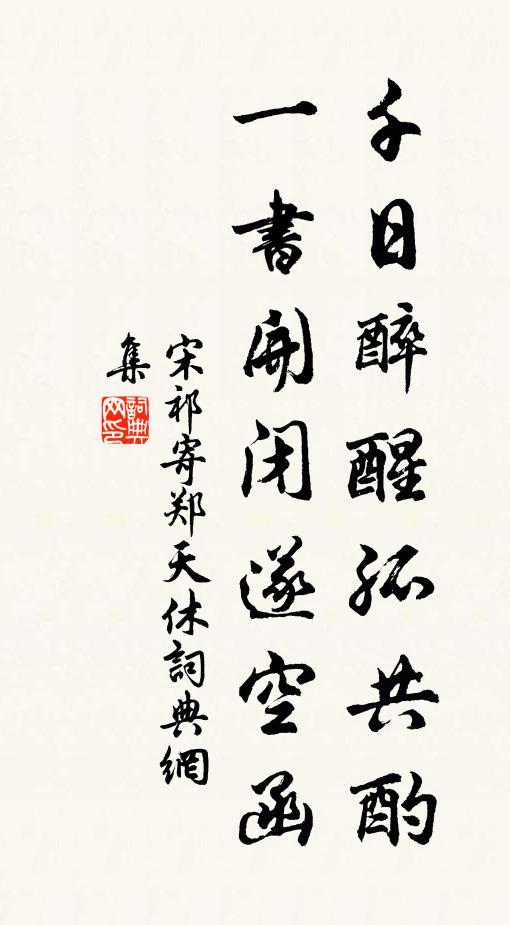 千日醉醒孤共酌
一書開閉遂空函
宋祁寄郑天休詞典網
集
詞典网印